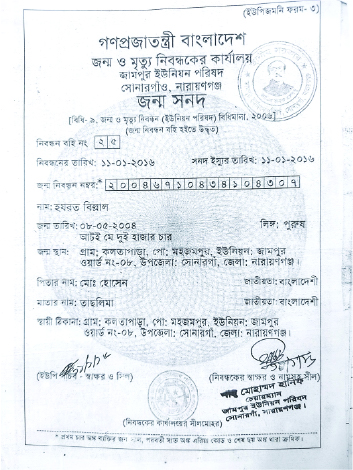 (ইউপিজমনি ফরম- ৩)
গণপ্রজাতন্ত্রী বাংলাদেশ
জন্ম ও মৃত্যু নিবন্ধকের কার্যালয়
জামপুর ইউনিয়ন পরিষদ
সোনারগাঁও, নারায়ণগঞ্জ
জন্ম সনদ
[বিধি- ৯, জন্ম ও মৃত্যু নিবন্ধন (ইউনিয়ন পরিষদ) বিধিমালা, ২০০৬]
(জন্ম নিবন্ধন বহি হইতে উদ্ধৃত)
নিবন্ধন বহি নং ২৫
নিবন্ধনের তারিখ: ১১-০১-২০১৬ সনদ ইস্যুর তারিখ: ১১-০১-২০১৬
জন্ম নিবন্ধন নম্বর:* ২০০৪৬৭১০৪৩৪১০৪৩০৭
নাম: হযরত বিল্লাল
জন্ম তারিখ: ০৮-০৫-২০০৪ লিঙ্গ: পুরুষ
আটই মে দুই হাজার চার
জন্ম স্থান: গ্রাম: কলতাপাড়া, পো: মহজমপুর, ইউনিয়ন: জামপুর
ওয়ার্ড নং-০৮, উপজেলা: সোনারগাঁ, জেলা: নারায়ণগঞ্জ।
পিতার নাম: মোঃ হোসেন জাতীয়তা: বাংলাদেশী
মাতার নাম: তাছলিমা জাতীয়তা: বাংলাদেশী
স্থায়ী ঠিকানা: গ্রাম: কলতাপাড়া, পো: মহজমপুর, ইউনিয়ন: জামপুর
ওয়ার্ড নং-০৮, উপজেলা: সোনারগাঁ, জেলা: নারায়ণগঞ্জ।
(নিবন্ধকের স্বাক্ষর ও নামসহ সীল)
মোহাম্মদ হানিফ
চেয়ারম্যান
জামপুর ইউনিয়ন পরিষদ
সোনারগাঁ, নারায়ণগঞ্জ।
(নিবন্ধকের কার্যালয়ের সীলমোহর)